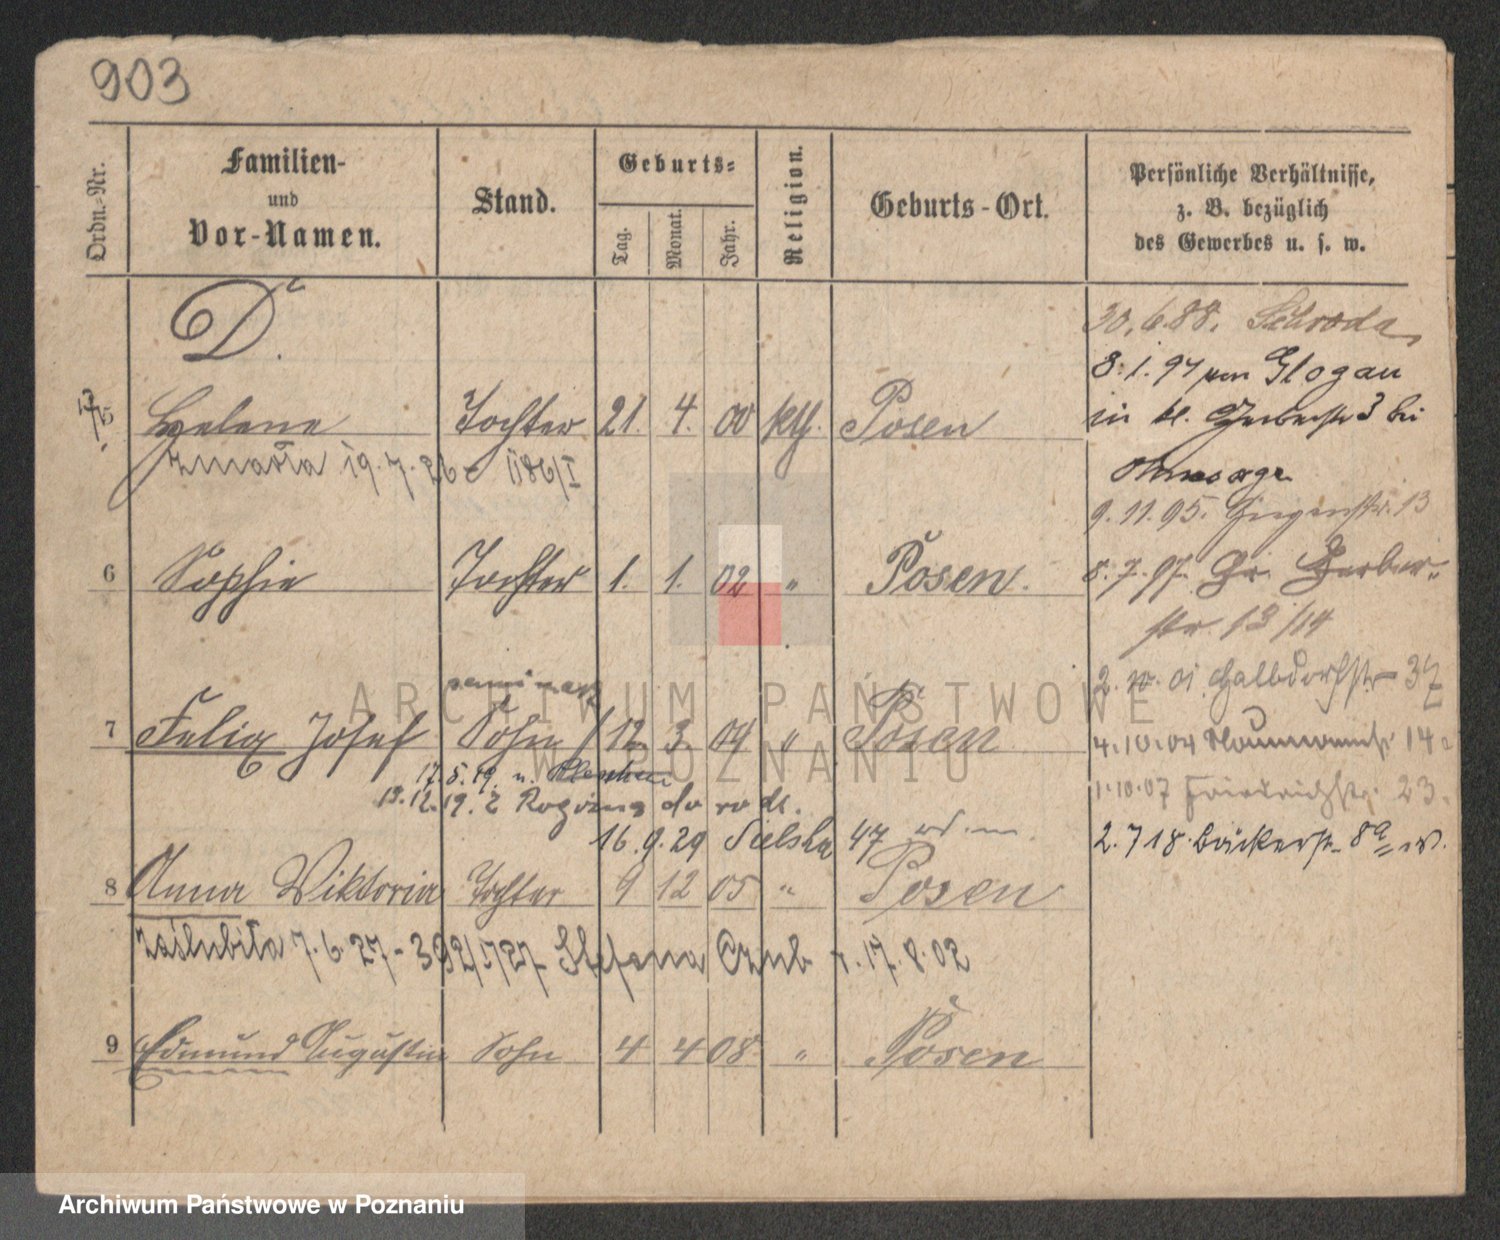 903
Ordn.-Nr.
Familien-
und
Vor-Namen.
Stand.
Geburts-
Tag.
Monat.
Jahr.
Religion.
Geburts-Ort.
Persönliche Verhältnisse,
z. B. bezüglich
des Gewerbes u. s. w.
D.
30.6.88. Schroda
8.1.94 von Glogau
5 Helene Tochter 21. 4. 00 kth. Posen
in kl. Gerberstr 3 bei
zmarła 19.7.26 - 1186/I
9.11.95. 13
6 Sophie Tochter 1. 1. 02 " Posen.
8.7.97. Gr. Gerber-
str. 13/14
seminarz
2. 10. 01. Halbdorfstr. 37
7 Felix Josef Sohn 12. 3. 04 " Posen
4.10.04 Naumannstr. 14a
17.5.19. n. Pleschen
1.10.07 Friedrichstr. 23.
13.12.19. z Rogozna do rodz.
16.9.29 Sielska 47
2.7 18. Bäckerstr. 8a
8 Anna Wiktoria Tochter 9 12 05 " Posen
zaślubiła 7.6.27 - 392/1727 Stefana Czub r. 17.8.02
9 Edmund Augustin Sohn 4 4 08 " Posen
ARCHIWUM PAŃSTWOWE
W POZNANIU
Archiwum Państwowe w Poznaniu